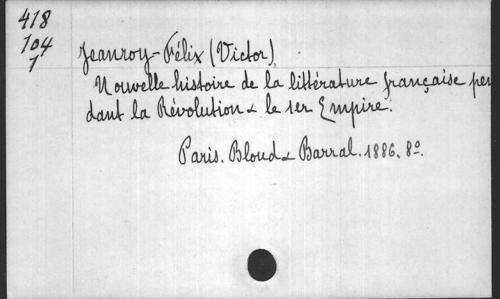 418
104
1
Jeanroy-Félix (Victor)
Nouvelle histoire de la littérature française pen
dant la Révolution & le 1er Empire.
Paris. Bloud & Barral. 1886. 8º.